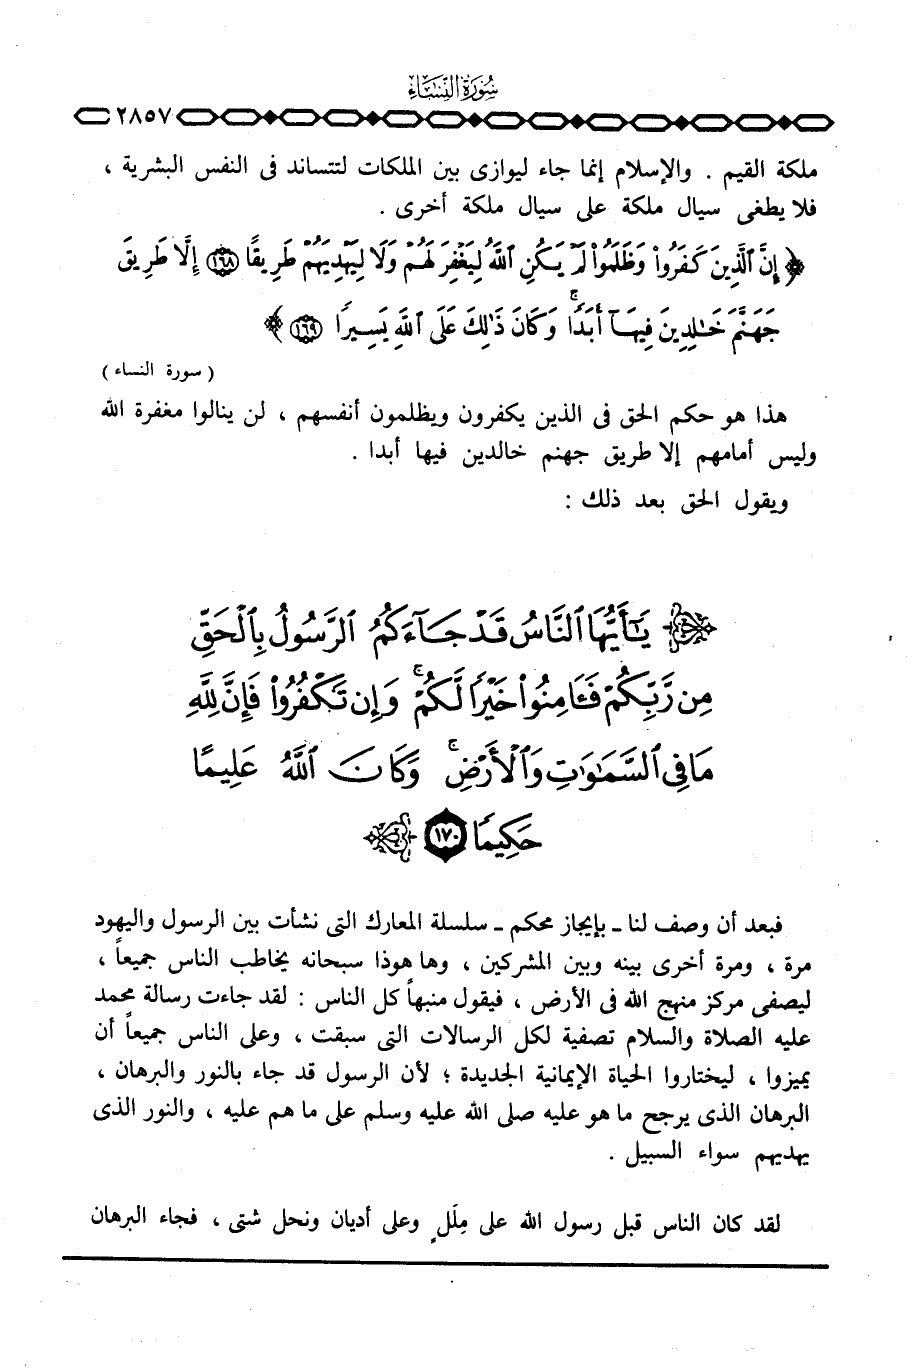 سُورَةُ النِّسَاءِ
٢٨٥٧
ملكة القيم . والإسلام إنما جاء ليوازى بين الملكات لتتساند فى النفس البشرية ،
فلا يطغى سيال ملكة على سيال ملكة أخرى .
﴿ إِنَّ ٱلَّذِينَ كَفَرُوا۟ وَظَلَمُوا۟ لَمْ يَكُنِ ٱللَّهُ لِيَغْفِرَ لَهُمْ وَلَا لِيَهْدِيَهُمْ طَرِيقًا ﴿١٦٨﴾ إِلَّا طَرِيقَ
جَهَنَّمَ خَـٰلِدِينَ فِيهَآ أَبَدًا ۚ وَكَانَ ذَٰلِكَ عَلَى ٱللَّهِ يَسِيرًا ﴿١٦٩﴾ ﴾
( سورة النساء )
هذا هو حكم الحق فى الذين يكفرون ويظلمون أنفسهم ، لن ينالوا مغفرة الله
وليس أمامهم إلا طريق جهنم خالدين فيها أبدا .
ويقول الحق بعد ذلك :
يَـٰٓأَيُّهَا ٱلنَّاسُ قَدْ جَآءَكُمُ ٱلرَّسُولُ بِٱلْحَقِّ
مِن رَّبِّكُمْ فَـَٔامِنُوا۟ خَيْرًا لَّكُمْ ۚ وَإِن تَكْفُرُوا۟ فَإِنَّ لِلَّهِ
مَا فِى ٱلسَّمَـٰوَٰتِ وَٱلْأَرْضِ ۚ وَكَانَ ٱللَّهُ عَلِيمًا
حَكِيمًا ﴿١٧٠﴾
فبعد أن وصف لنا ـ بإيجاز محكم ـ سلسلة المعارك التى نشأت بين الرسول واليهود
مرة ، ومرة أخرى بينه وبين المشركين ، وها هوذا سبحانه يخاطب الناس جميعاً ،
ليصفى مركز منهج الله فى الأرض ، فيقول منبهاً كل الناس : لقد جاءت رسالة محمد
عليه الصلاة والسلام تصفية لكل الرسالات التى سبقت ، وعلى الناس جميعاً أن
يميزوا ، ليختاروا الحياة الإيمانية الجديدة ؛ لأن الرسول قد جاء بالنور والبرهان ،
البرهان الذى يرجح ما هو عليه صلى الله عليه وسلم على ما هم عليه ، والنور الذى
يهديهم سواء السبيل .
لقد كان الناس قبل رسول الله على مِلَلٍ وعلى أديان ونحل شتى ، فجاء البرهان